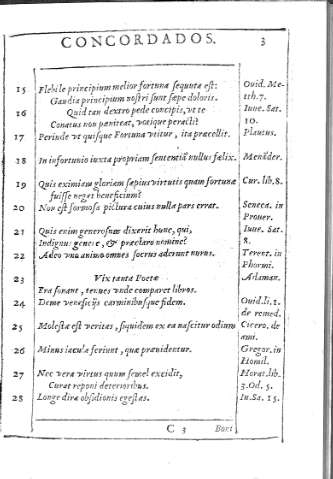 CONCORDADOS. 3
15 Flebile principium melior fortuna sequuta est: Ouid. Me-
Gaudia principium nostri sunt sæpe doloris. tth.7.
16 Quid tan dextro pede concipis, vt te Iuue. Sat.
Conatus non pœniteat, votique peracti? 10.
17 Perinde vt quisque Fortuna vtitur, ita præcellit. Plautus.
18 In infortunio iuxta propriam sententiā nullus fœlix. Menāder.
19 Quis eximiam gloriam sæpius virtutis quam fortunæ Cur. lib. 8.
fuisse neget beneficium?
20 Non est formosa pictura cuius nulla pars errat. Seneca. in
Prouer.
21 Quis enim generosum dixerit hunc, qui, Iuue. Sat.
Indignus genere, & præclaro nomine? 8.
22 Adeo vno animo omnes socrus oderunt nurus. Terent. in
Phormi.
23 Vix tanta Poetæ
Era ferant, tenues vnde comparet libros.
24 Deme veneficijs carminibusque fidem. Ouid. li. 2.
de remed.
25 Molesta est veritas, siquidem ex ea nascitur odium Cicero. de
ami.
26 Minus iacula feriunt, quæ præuidentur. Gregor. in
Homil.
27 Nec vera virtus quum semel excidit, Horat. lib.
Curat reponi deterioribus. 3. Od. 5.
28 Longe dira obsidionis egestas. Iu. Sat. 15.
C 3